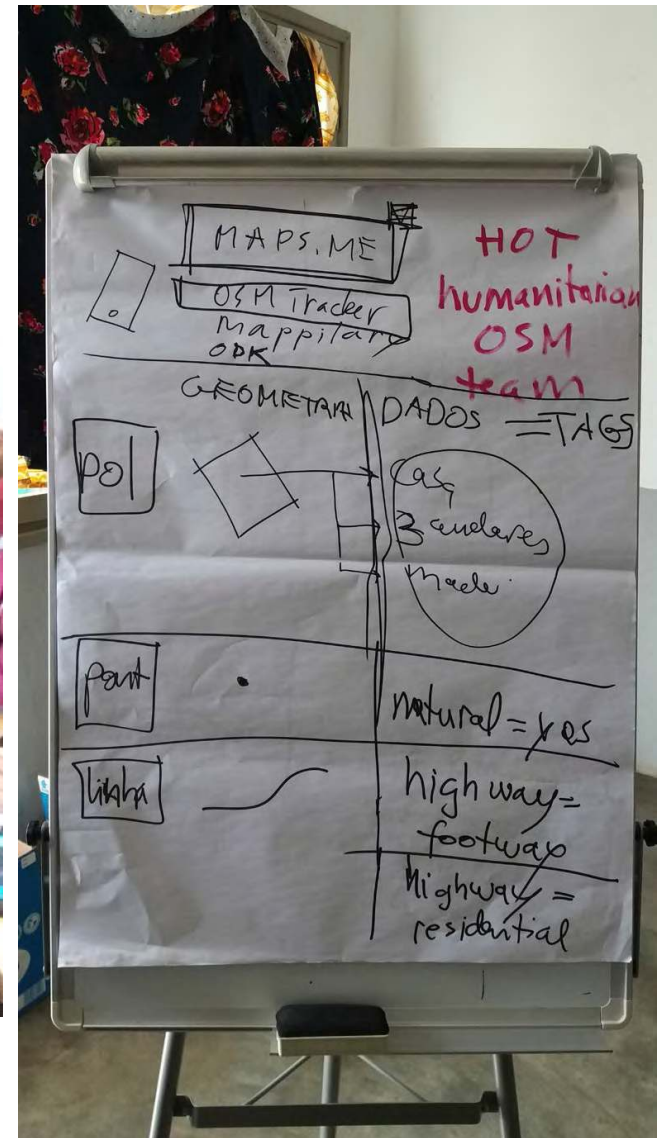 MAPS.ME
OSM Tracker
Mappilary
ODK
HOT
humanitarian
OSM
team
GEOMETRIA
DADOS = TAGS
pol
casa
3 andares
made.
pont
natural = yes
linha
highway =
footway
highway =
residential